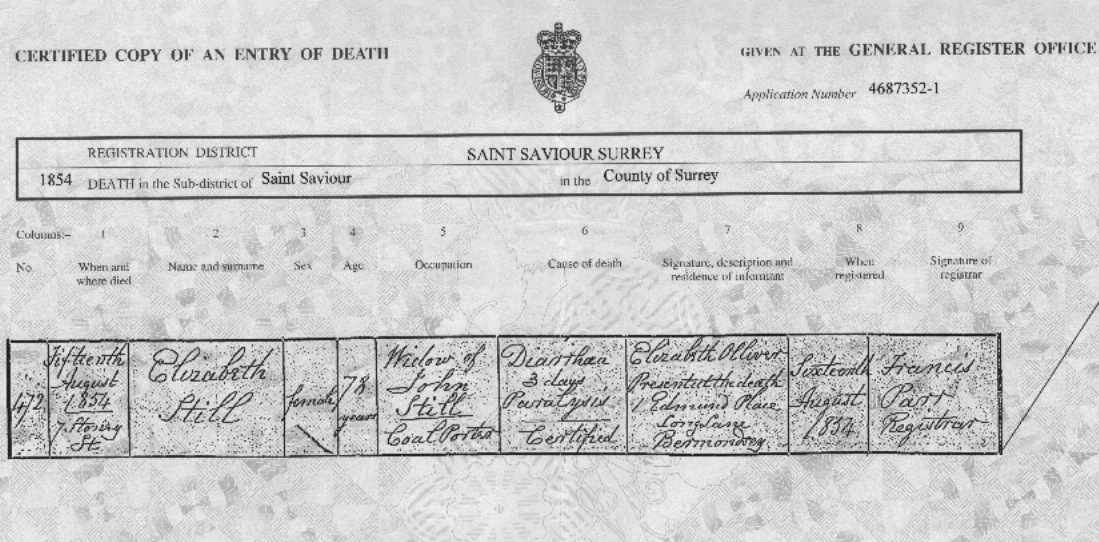 CERTIFIED COPY OF AN ENTRY OF DEATH
GIVEN AT THE GENERAL REGISTER OFFICE
Application Number 4687352-1
REGISTRATION DISTRICT SAINT SAVIOUR SURREY
1854 DEATH in the Sub-district of Saint Saviour in the County of Surrey
Columns:- 1 2 3 4 5 6 7 8 9
No. When and where died Name and surname Sex Age Occupation Cause of death Signature, description and residence of informant When registered Signature of registrar
472
Fifteenth
August
1854
7 Stoney
St
Elizabeth
Still
female
78
years
Widow of
John
Still
Coal Porter
Diarrhaa
3 days
Paralysis
Certified
Elizabeth Olliver
Present at the death
1 Edmund Place
Long Lane
Bermondsey
Sixteenth
August
1854
Francis
Parr
Registrar